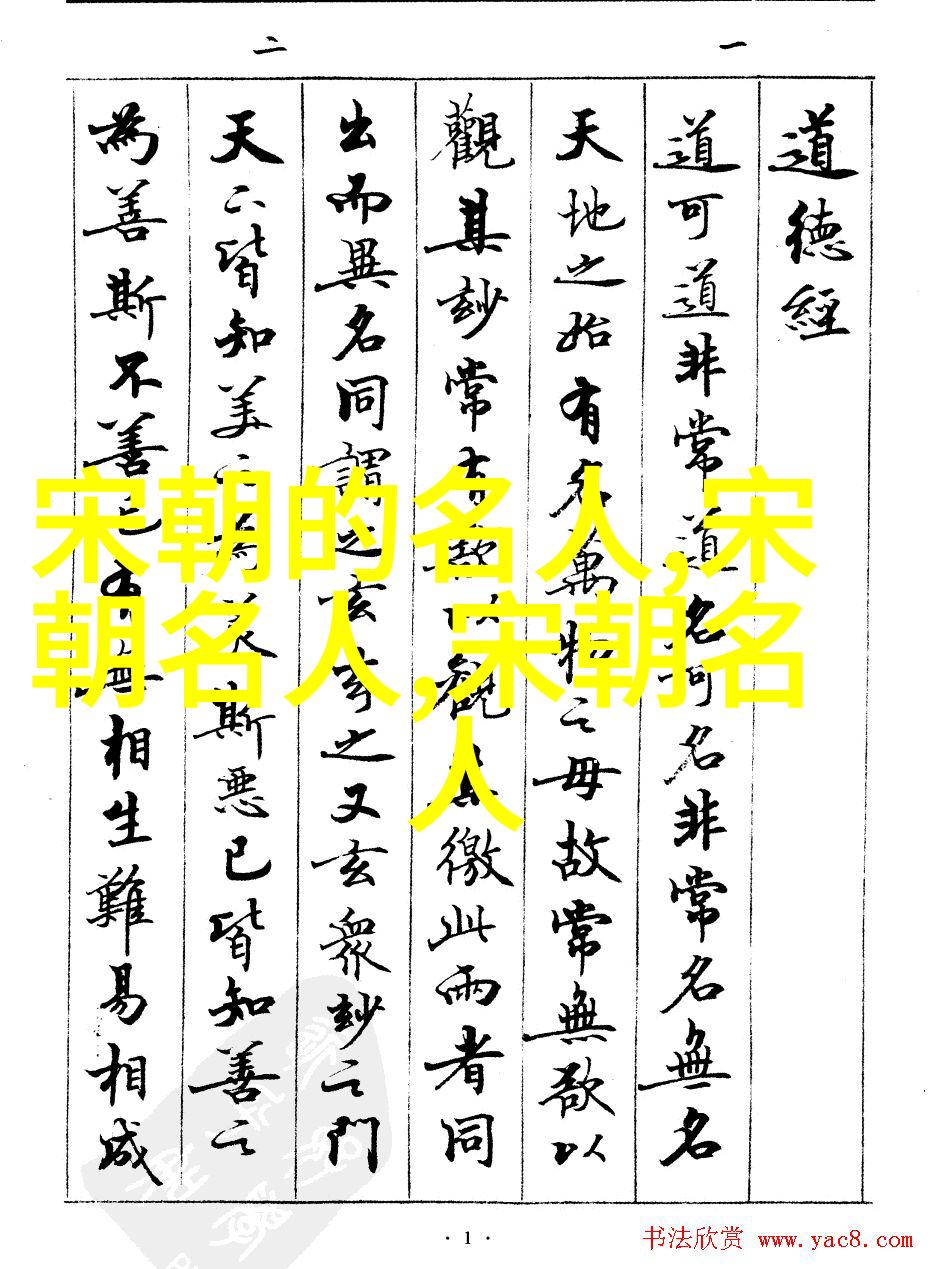 二 一
道德經
道可道非常道名可名非常名無名
天地之始有名萬物之母故常無欲以
觀其玅常有欲以觀其徼此兩者同
出而異名同謂之玄玄之又玄衆玅之門
天下皆知美之為美斯惡已皆知善之
為善斯不善已有無相生難易相成
宋朝的名人,宋
朝名人,宋朝名
人
· 1 ·
书法欣赏 www.yac8.com